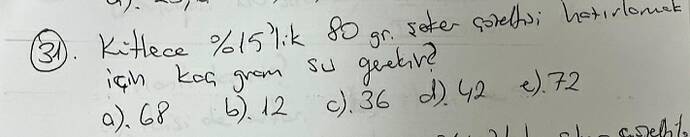 31). Kütlece %15'lik 80 gr. şeker çözeltisi hatırlamak
için kaç gram su gerekir?
a). 68 b). 12 c). 36 d). 42 e). 72